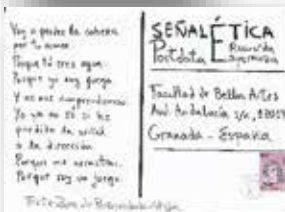 Voy a perder la cabeza
por tu amor
Porque tú eres agua
Porque yo soy fuego
Y no nos comprendemos
Yo ya no sé si he
perdido la
o la dirección
Porque me arrastras.
Porque soy un juego.
SEÑALÉTICA
Postdata
Facultad de Bellas Artes
Avd. Andalucía s/n,
Granada - España